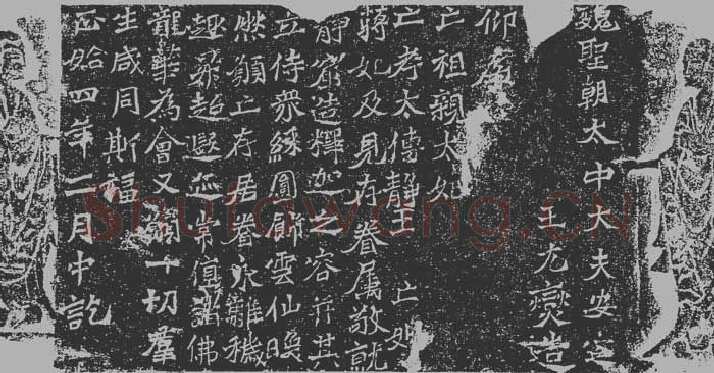 魏聖朝太中大夫安定
王元燮造
仰為
亡祖親太妃
亡考太傅靜王 亡妣
蔣妃及見存眷屬敬就
靜窟造釋迦之容并其
立侍眾綵圓飾雲仙煥
然願亡存居眷永離穢
趣昇超遐迹常值諸佛
龍華為會又願一切羣
生咸同斯福
正始四年二月中訖
Shufawang.CN